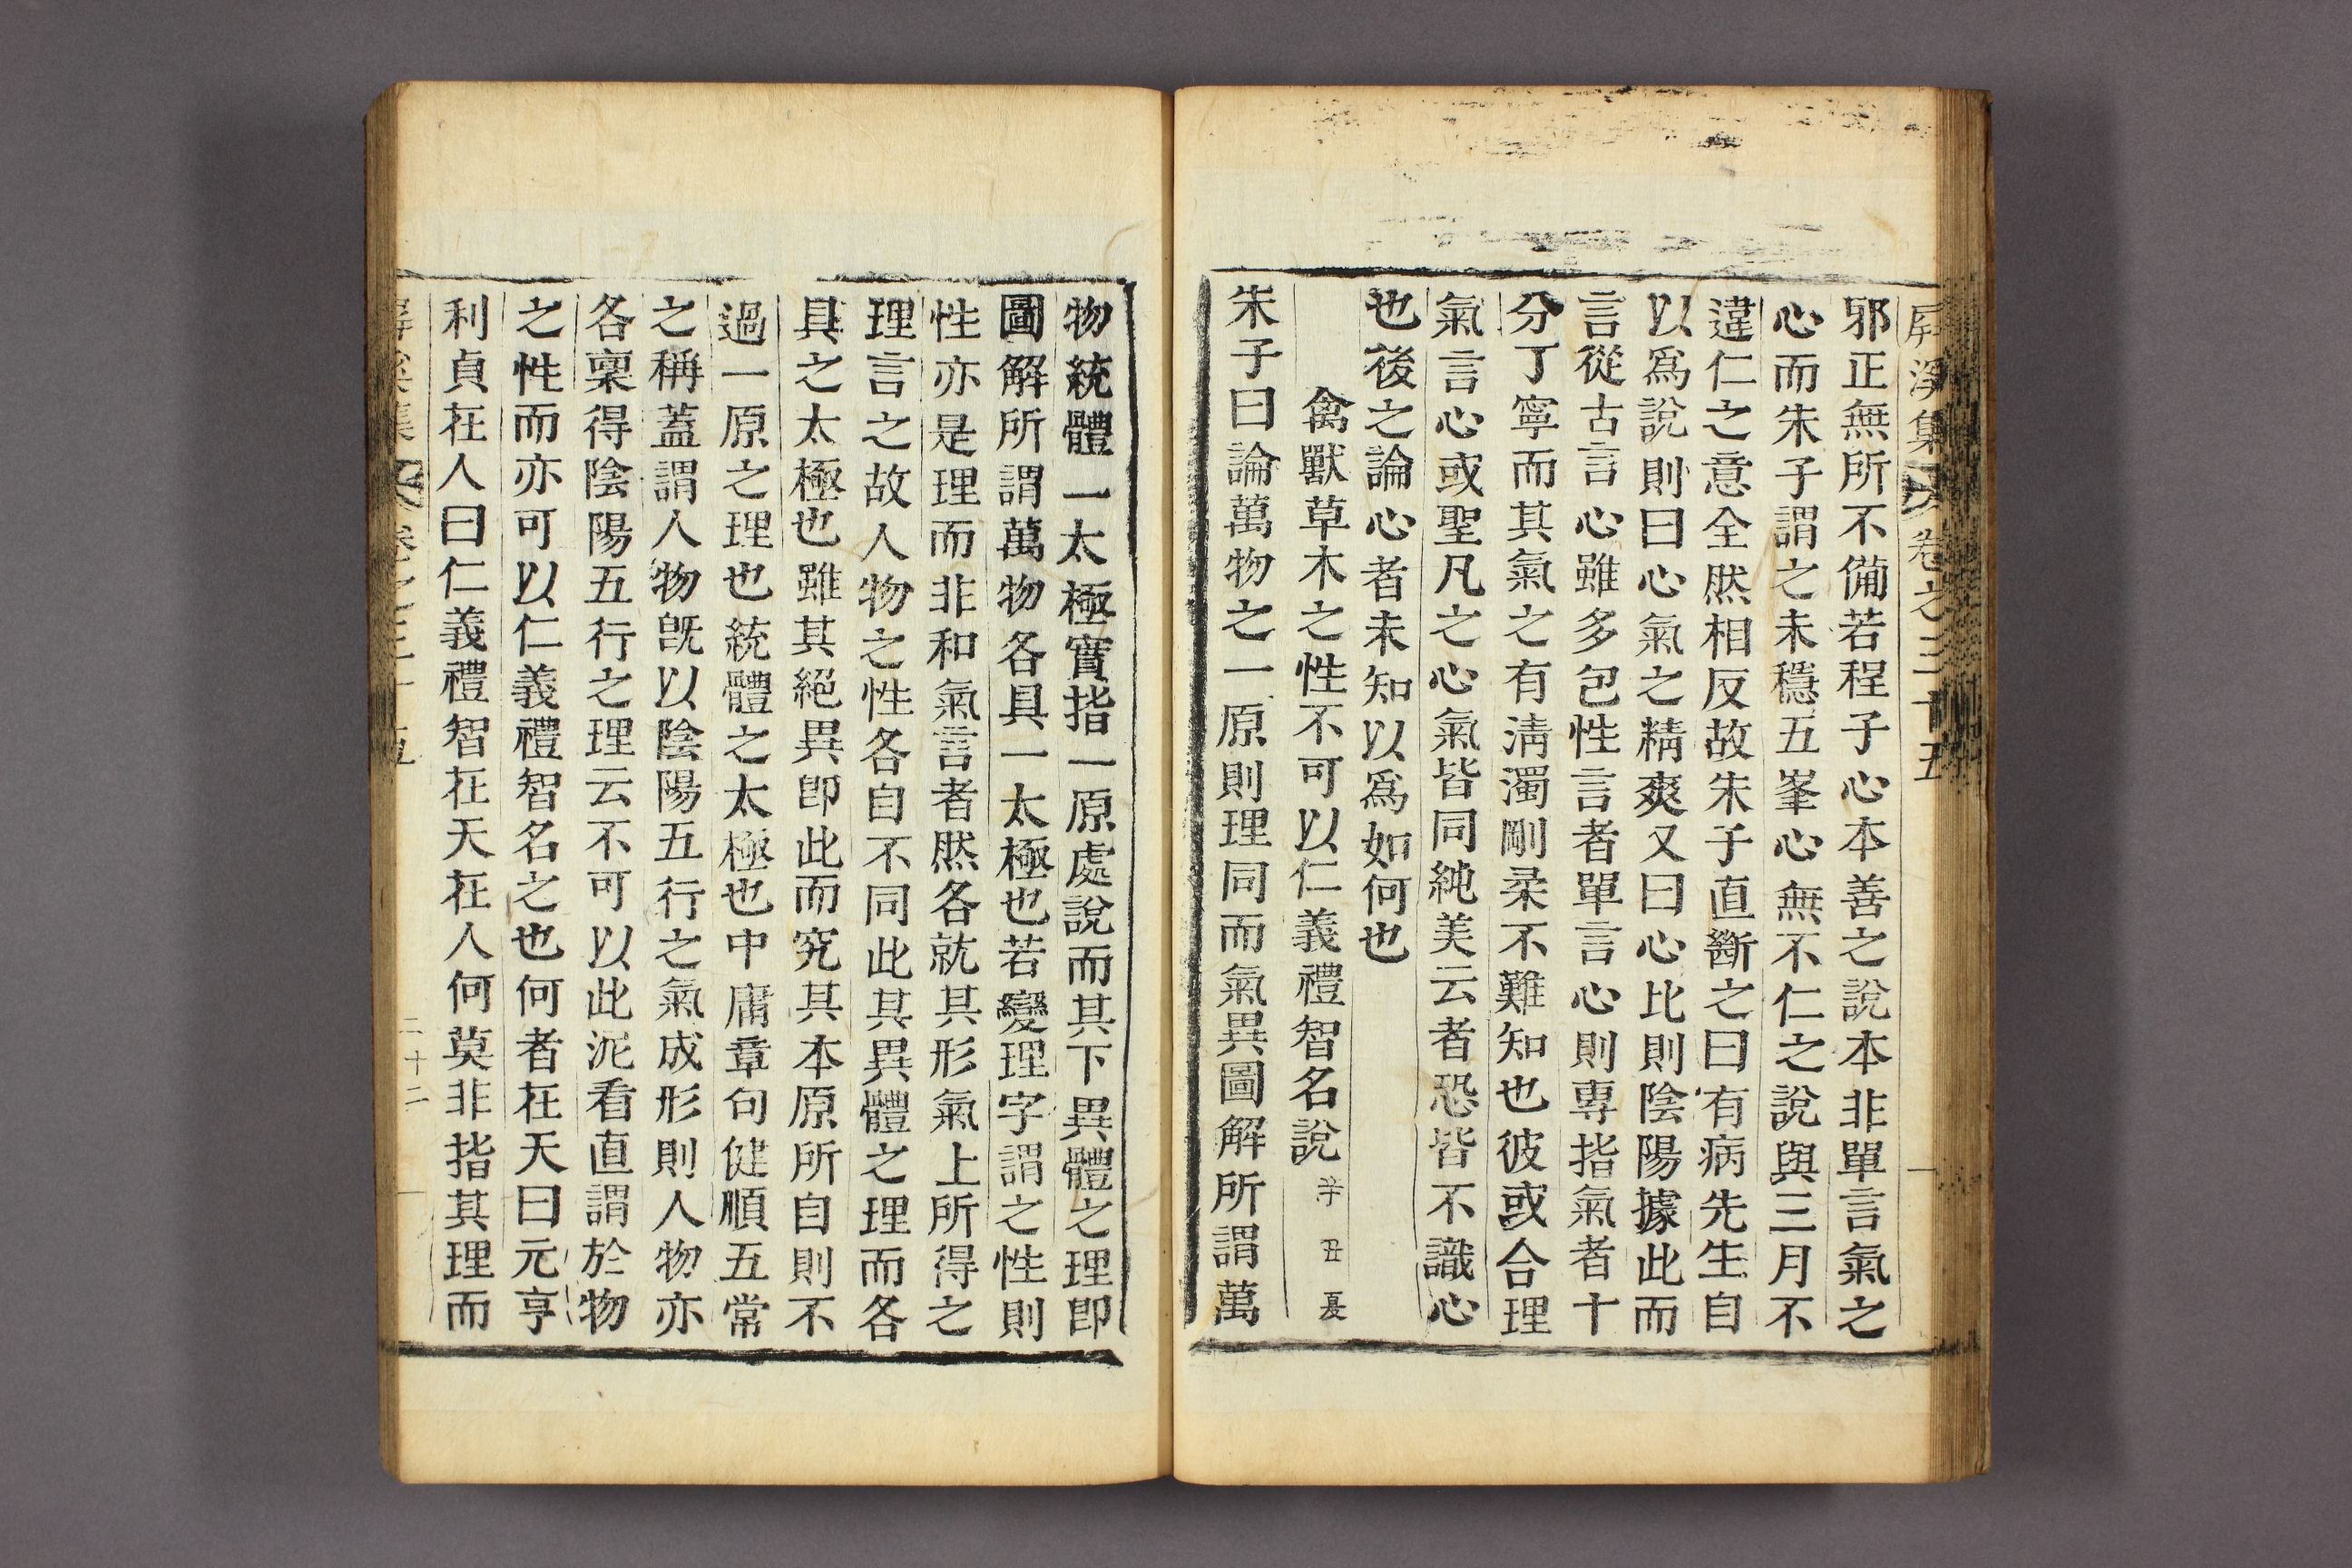 屛溪集 卷之三十五
邪正無所不備若程子心本善之說本非單言氣之
心而朱子謂之未穩五峯心無不仁之說與三月不
違仁之意全然相反故朱子直斷之曰有病先生自
以爲說則曰心氣之精爽又曰心比則陰陽據此而
言從古言心雖多包性言者單言心則專指氣者十
分丁寧而其氣之有淸濁剛柔不難知也彼或合理
氣言心或聖凡之心氣皆同純美云者恐皆不識心
也後之論心者未知以爲如何也
禽獸草木之性不可以仁義禮智名說 辛丑夏
朱子曰論萬物之一原則理同而氣異圖解所謂萬
物統體一太極實指一原處說而其下異體之理卽
圖解所謂萬物各具一太極也若變理字謂之性則
性亦是理而非和氣言者然各就其形氣上所得之
理言之故人物之性各自不同此其異體之理而各
具之太極也雖其絕異卽此而究其本原所自則不
過一原之理也統體之太極也中庸章句健順五常
之稱蓋謂人物旣以陰陽五行之氣成形則人物亦
各稟得陰陽五行之理云不可以此泥看直謂於物
之性而亦可以仁義禮智名之也何者在天曰元亨
利貞在人曰仁義禮智在天在人何莫非指其理而
屛溪集 卷之三十五 二十二